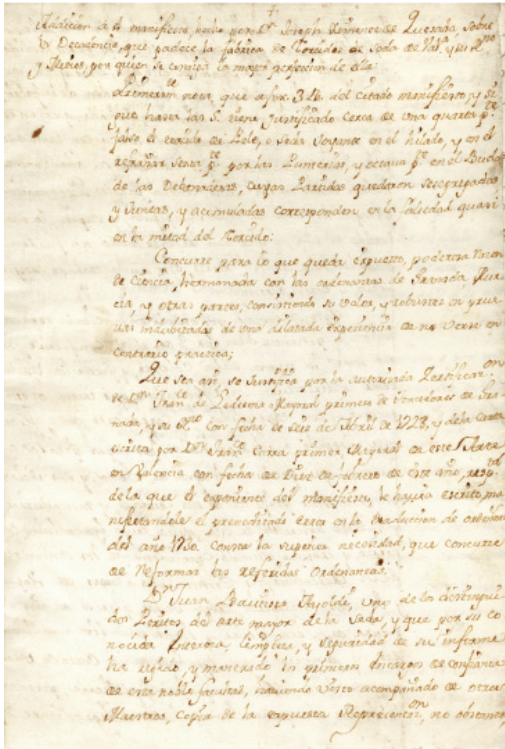 +
Adicion a el manifiesto, hecho por Dn. Joseph Ximenez de Quesada, sobre
la Decadencia, que padece la fabrica de Torcidos de Seda de Val.a y su Rno
y Medios, por quien se consiga la mayor perfeccion de ella:
Primeram.te nota, que a for. 34. del citado manifiesto, y si
gue hasta las tiene Justificado cerca de una quarta p.te
falso el texido de Pelo, o Sedas Soyante en el hilado, y en el
repasar Sexta p.te por las Punterias, y octava p.te en el
de las Debanaderas, cuyas Partidas quedaron Secegregadas
y Juntas, y acumuladas corresponden en la falsedad quasi
en la mitad del Torcido:
Concurre para lo que queda expuesto, poderosa razon
de ciencia, hermanada con las ordenanzas de Granada, Mur
cia, y otras partes, consistiendo su valor, y robustez en prue
vas indubitadas de una dilatada experiencia de no verse en
contrario practica;
Que sea asi, se Justifica por la autorizada Certificac.on
de Dn. Fran.co de Pedrosa Mayoral primero de torcedores de Gra
nada, y su R.no con fecha de Seis de Abril de 1728, y de la Carta
escrita por Dn. Fran.co Corra primer Mayoral de este Arte
en Valencia con fecha de Diez de febrero de este año, resp.ta
de la que el exponente del manifiesto, le havia escrito, ma
nifestandole el premeditado error en la traduccion de ordenanzas
del año 1730. consta la superior necesidad, que concurre
de Reformar las referidas Ordenanzas.
Dn. Juan Bautista Ayolde, uno de los distingui
dos Peritos del arte mayor de la Seda, y que por su co
nocida Entereza, limpieza, y seguridad de su informe
ha regido, y manexado los primeros Encargos de confianza
de esta noble facultad, haviendo visto acompañado de otros
Maestros, Copia de la expuesta Representac.on, no obstante